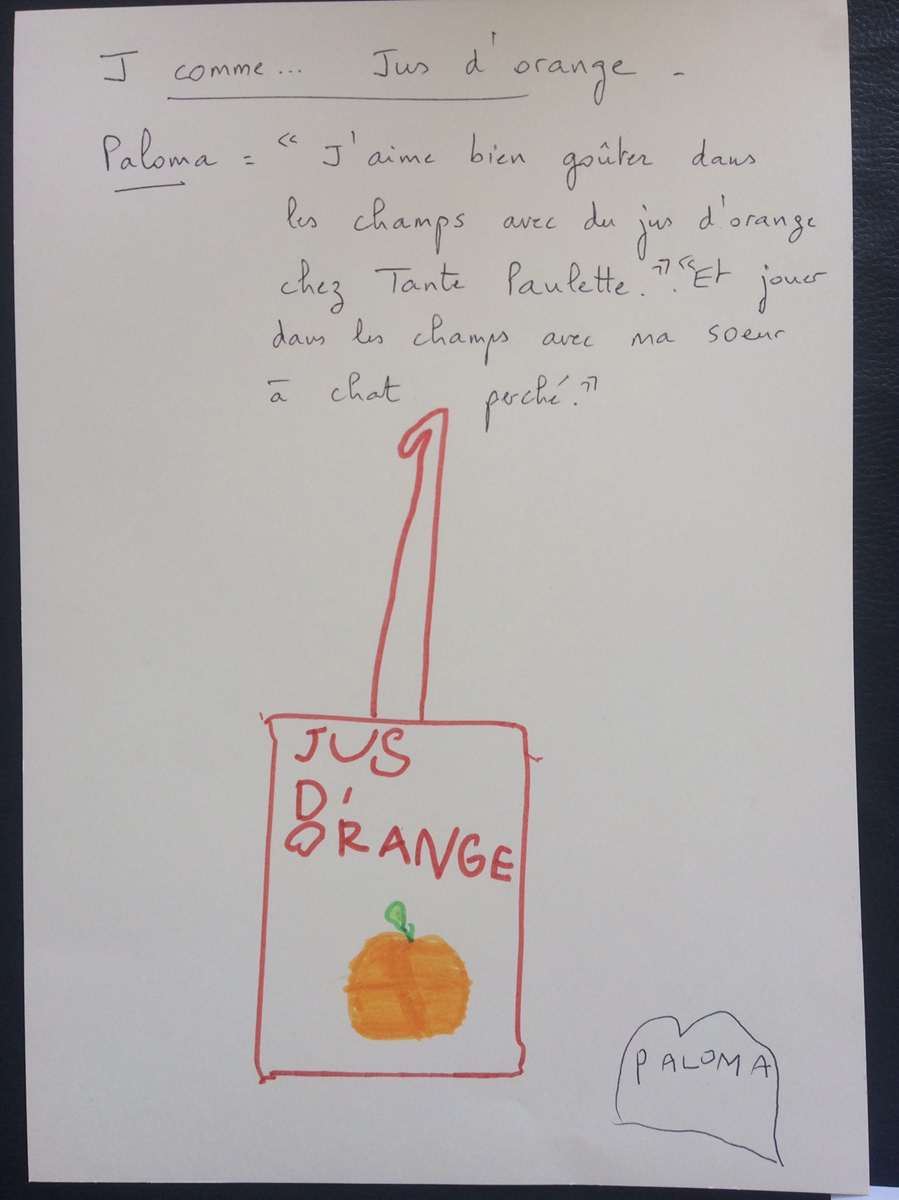 J comme... Jus d'orange -
Paloma = " J'aime bien goûter dans
les champs avec du jus d'orange
chez Tante Paulette.". "Et jouer
dans les champs avec ma soeur
à chat perché."
JUS
D'
ORANGE
PALOMA